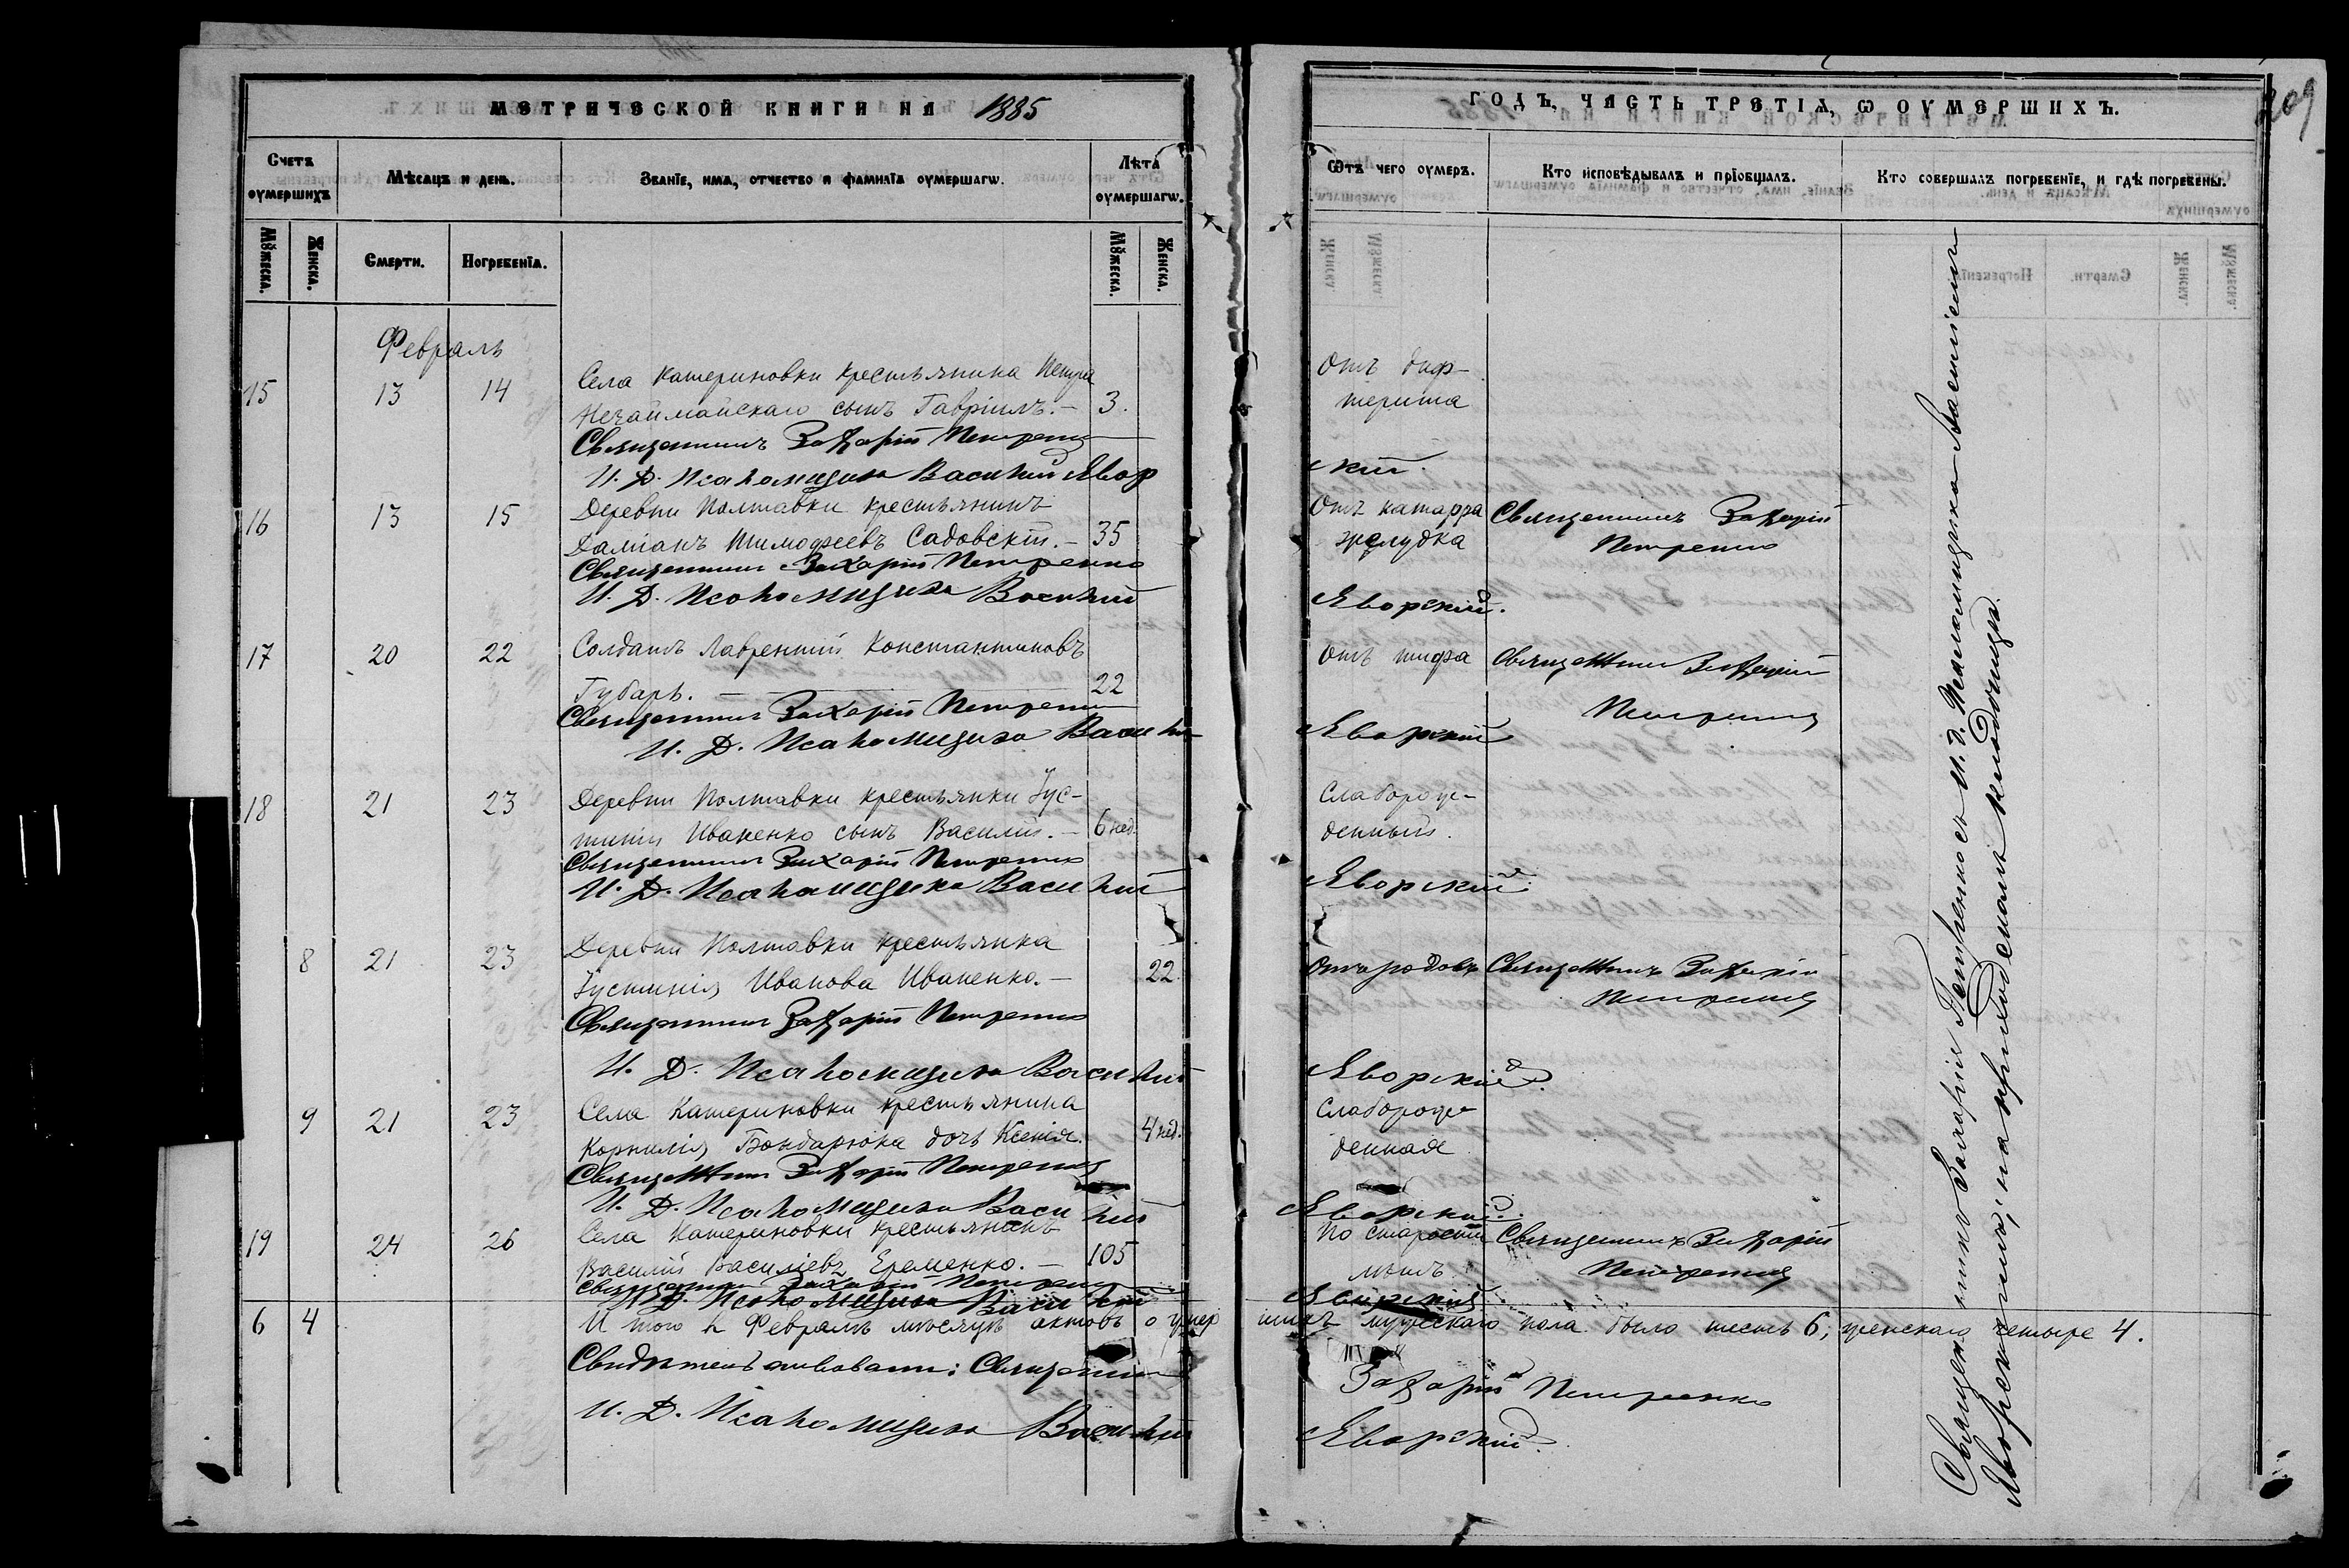 МЕТРИЧЕСКОЙ КНИГИ НА 1885
ГОДЪ, ЧАСТЬ ТРЕТІЯ, Ѡ ОУМЕРШИХЪ.
209
Счетъ оумершихъ
Мѣсяцъ и день.
Званїе, имѧ, отчество и фамилїѧ оумершагѡ.
Лѣта оумершагѡ.
Ѿтъ чего оумеръ.
Кто исповѣдывалъ и прїобщалъ.
Кто совершалъ погребенїе, и гдѣ погребены.
Мꙋжеска.
Женска.
Смерти.
Погребенїѧ.
Мꙋжеска.
Женска.
Февраль
15 13 14 Села Катериновки крестьянина Петра
Нечаймайскаго сынъ Гавріилъ.- 3.
Отъ диф-
терита
Священникъ Захарій Петренко
И. Д. Псаломщика Василий Явор
ский.
16 13 15 Деревни Полтавки крестьянинъ
Даміанъ Тимофеевъ Садовскій.- 35
Отъ катарра
желудка
Священникъ Захарій
Петренко
Священникъ Захарій Петренко
И. Д. Псаломщика Василий
Яворский.
17 20 22 Солдатъ Лаврентий Константиновъ
Губарь. - 22
Отъ тифа
Священникъ Захарій
Петренко
Священникъ Захарій Петренко
И. Д. Псаломщика Васили
Яворский
18 21 23 Деревни Полтавки крестьянки Іус-
тиніи Иваненко сынъ Василий.- 6 нед.
Слаборож-
денный.
Священникъ Захарій Петренко
И. Д. Псаломщика Василий
Яворский.
8 21 23 Деревни Полтавки крестьянка
Іустинія Иванова Иваненко.- 22.
Отъ родовъ
Священникъ Захарій
Петренко
Священникъ Захарій Петренко
И. Д. Псаломщика Василий
Яворский.
9 21 23 Села Катериновки крестьянина
Корнилія Бондарюка дочь Ксенія. 4 нед.
Слаборож-
денная
Священникъ Захарій Петренко
И. Д. Псаломщика Василий
Яворский.
19 24 26 Села Катериновки крестьянинъ
Василий Василіевъ Еременко.- 105
По старости
лѣтъ
Священникъ Захарій
Петренко
Священникъ Захарій Петренко
И. Д. Псаломщика Василий
Яворский
6 4 И того въ Февралѣ мѣсяцѣ актовъ о умер
шихъ мужескаго пола было шесть 6, женскаго четыре 4.
Свидѣтельствовали: Священникъ
Захарій Петренко
И. Д. Псаломщика Василий
Яворский.
Священникъ Захарія Петренко съ И. д. Псаломщика Василіемъ
Яворскимъ, на приходскомъ кладбищѣ.